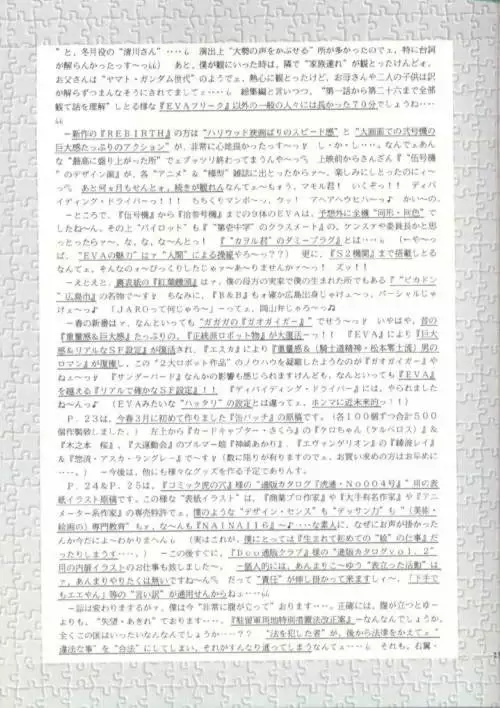 ”と、冬月役の“清川さん”‥‥6 演出上“大勢の声をかぶせる”所が多かったのでェ、特に台詞
が解らんかったっす〜っ66) あと、僕が観にいった時は、隣で“家族連れ”が観とったけんどォ、
お父さんは“ヤマト・ガンダム世代”のようでェ、熱心に観とったけど、お母さんや二人の子供は訳
が解らずつまんなそうにされてましてェ…6 総集編と言いつつ、“第一話から第二十六まで全部
観て話を理解”しとる様な『EVAフリーク』以外の一般の人々には長かった70分でしょうね‥‥
66
－新作の『REBIRTH』の方は“ハリウッド映画ばりのスピード感”と“大画面での弐号機の
巨大感たっぷりのアクション”が、非常に心地良かったす〜っ し・か・し…。なんでェあん
な“最高に盛り上がった所”でェブッツリ終わってまうんや〜っ 上映前からさんざん『“伍号機
”のデザイン画』が、各“アニメ”＆“模型”雑誌に出とったからァ〜、楽しみにしとったのにィ〜
っ あと何ヵ月もせんとォ、続きが観れんなんてェ〜もう、マモル君！ いくぞっ！！ ディバ
イディング・ドライバーっ！！！
－ところで、『伍号機』から『拾参号機』までの9体のEVAは、予想外に全機“同形・同色”で
したね〜ん。その上“パイロット”も『“第壱中学”のクラスメート』の、ケンスケや委員長かと思
っとったらァ〜、な、な、な〜んとっ！ 『“カヲル君”のダミープラグ』とは…6 （－や〜っ
ぱ、“EVAの魅力”はァ“人間”による操縦やろ〜っ？？） 更に、『S2機関』まで搭載しとる
なんてェ、そんなのォ〜びっくりしたじゃァ〜あ〜りませんかァ〜っ！ ズッ！！
－ええとぉと、裏表紙の『紅葉饅頭』はァ、僕の母方の実家で僕の生まれた所でもある『“ピカドン
”広島市』の名物で〜す ちなみに、『B＆B』もォ確か広島出身じゃけぇ〜っ、バーシャルじゃ
けェ〜っ♪ （JAROって何じゃろ〜）－ってェ、岡山弁じゃろ〜っ
－春の新番はァ、なんといっても“ガガガの『ガオガイガー』”でせう〜っ いやはや、昔の
『重量感＆巨大感』たっぷりの、『正統派ロボット物』が大復活〜っ！！ 『EVA』により『巨大
感＆リアルなSF設定』が復活され、『エスカ』により『重量感＆（騎士道精神・松本零士流）男の
ロマン』が復権し、この“2大ロボット作品”のノウハウを凝縮したようなのが『ガオガイガー』やね
ェ〜っ 『サンダーバード』なんかの影響も感じられますけんども、なんといっても『EVA』
を越える『リアルで確かなSF設定』！！ 『ディバイディング・ドライバー』には、やられました
ね〜んっ♪ （EVAみたいな“ハッタリ”の設定とは違ってェ、ホンマに近未来的っ！！）
P．23は、今春3月に初めて作りました『缶バッチ』の原稿です。（各100個ずつ合計500
個作製致しました。） 左上から『カードキャプター・さくら』の『ケロちゃん（ケルベロス）』＆
『木之本 桜』、『大運動会』のブルマー娘『神崎あかり』、『エヴァンゲリオン』の『綾波レイ』
＆『惣流・アスカ・ラングレー』で〜す （数に限りが有りますのでェ、お買い求めの方はお早めに
‥‥。） －今後は、他にも様々なグッズを作る予定でありんす。
P．24＆P．25は、『コミック虎の穴』様の“通販カタログ『虎通・No004号』”用の表
紙イラスト原稿です。この様な“表紙イラスト”は、『商業プロ作家』や『大手有名作家』や『アニ
メーター系作家』の専売特許でェ、僕のような“デザイン・センス”も“デッサン力”も“（美術・
絵画の）専門教育”もァ、な〜んも『NAINAI16』〜♪‥‥な素人に、なぜにお声が掛かった
んか今だによ〜わかりまへん6 （実はこれが、僕にとっては『生まれて初めての“絵”の仕事』だ
ったりしまうす…。） －この後すぐに、『Dou通販クラブ』様の“通販カタログvol．2”
用の内観イラストのお仕事も致しました〜。 －個人的には、あんまりこ〜ゆう“表立った活動”は
ァ、あんまりやりたくは無いですね〜ん だって“責任”が伸し掛かって来ますしィ〜、「下手で
もエエやん」等の“言い訳”が通用せんからねェ…66
－話は変わりますがァ、僕は今“非常に腹が立って”おります‥‥。正確には、腹が立つとゆ〜
よりも、“失望・あきれ”ております‥‥。『駐留軍用地特別措置法改正案』－なんなんでしょうか、
全くこの国はいったいなんなんでしょうか‥‥？？ “法を犯した者”が、後から法律をかえてェ“
違法な事”を“合法”にしてしまい、それがすんなり通ってしまうなんてェ‥‥6 それも、右翼・